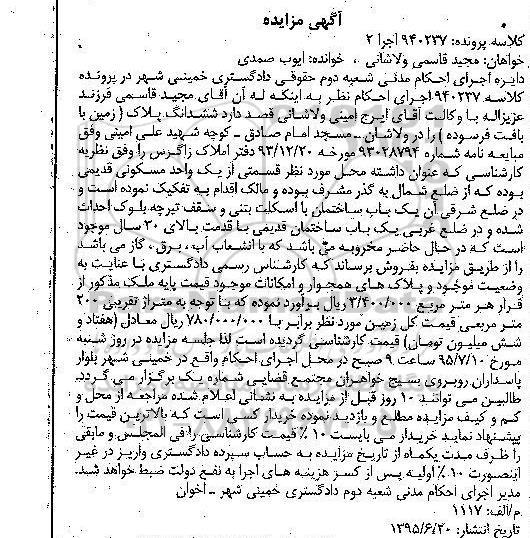 آگهی مزایده
کلاسه پرونده: ۹۴۰۲۳۷ اجرا ۲
خواهان: مجید قاسمی ولاشانی ، خوانده: ایوب صمدی
دایره اجرای احکام مدنی شعبه دوم حقوقی دادگستری خمینی شهر در پرونده
کلاسه ۹۴۰۲۳۷ اجرای احکام نظر به اینکه له آن آقای مجید قاسمی فرزند
عزیزاله با وکالت آقای ایرج امینی ولاشانی قصد دارد ششدانگ پلاک ( زمین با
بافت فرسوده ) را در ولاشان ــ مسجد امام صادق ــ کوچه شهید علی امینی وفق
مبایعه نامه شماره ۹۳۰۲۸۷۹۴ مورخه ۹۳/۱۲/۲۰ دفتر املاک زاگرس را وفق نظریه
کارشناسی که عنوان داشته محل مورد نظر قسمتی از یک واحد مسکونی قدیمی
بوده که از ضلع شمال به گذر مشرف بوده و مالک اقدام به تفکیک نموده است و
در ضلع شرقی آن یک باب ساختمان با اسکلت بتنی و سقف تیرچه بلوک احداث
شده و در ضلع غربی یک باب ساختمان قدیمی با قدمت بالای ۳۰ سال موجود
است که در حال حاضر مخروبه می باشد که با انشعاب آب ، برق ، گاز می باشد
را از طریق مزایده بفروش برساند که کارشناس رسمی دادگستری با عنایت به
وضعیت موجود و پلاک های همجوار و امکانات موجود قیمت پایه ملک مذکور از
قرار هر متر مربع ۳/۴۰۰/۰۰۰ ریال برآورد نموده که با توجه به متراژ تقریبی ۲۰۰
متر مربعی قیمت کل زمین مورد نظر برابر با ۷۸۰/۰۰۰/۰۰۰ ریال معادل (هفتاد و
شش میلیون تومان) قیمت کارشناسی گردیده است لذا جلسه مزایده در روز شنبه
مورخ ۹۵/۷/۱۰ ساعت ۹ صبح در محل اجرای احکام واقع در خمینی شهر بلوار
پاسداران روبروی بسیج خواهران مجتمع قضایی شماره یک برگزار می گردد.
طالبین می توانند ۱۰ روز قبل از مزایده به نشانی اعلام شده مراجعه از محل و
کم و کیف مزایده مطلع و بازدید نموده خریدار کسی است که بالاترین قیمت را
پیشنهاد نماید خریدار می بایست ۱۰ ٪ قیمت کارشناسی را فی المجلس و مابقی
را ظرف مدت یکماه از تاریخ مزایده به حساب سپرده دادگستری واریز در غیر
اینصورت ۱۰ ٪ اولیه پس از کسر هزینه های اجرا به نفع دولت ضبط خواهد شد.
مدیر اجرای احکام مدنی شعبه دوم دادگستری خمینی شهر ــ اخوان
م/الف: ۱۱۱۷
تاریخ انتشار: ۱۳۹۵/۶/۲۰